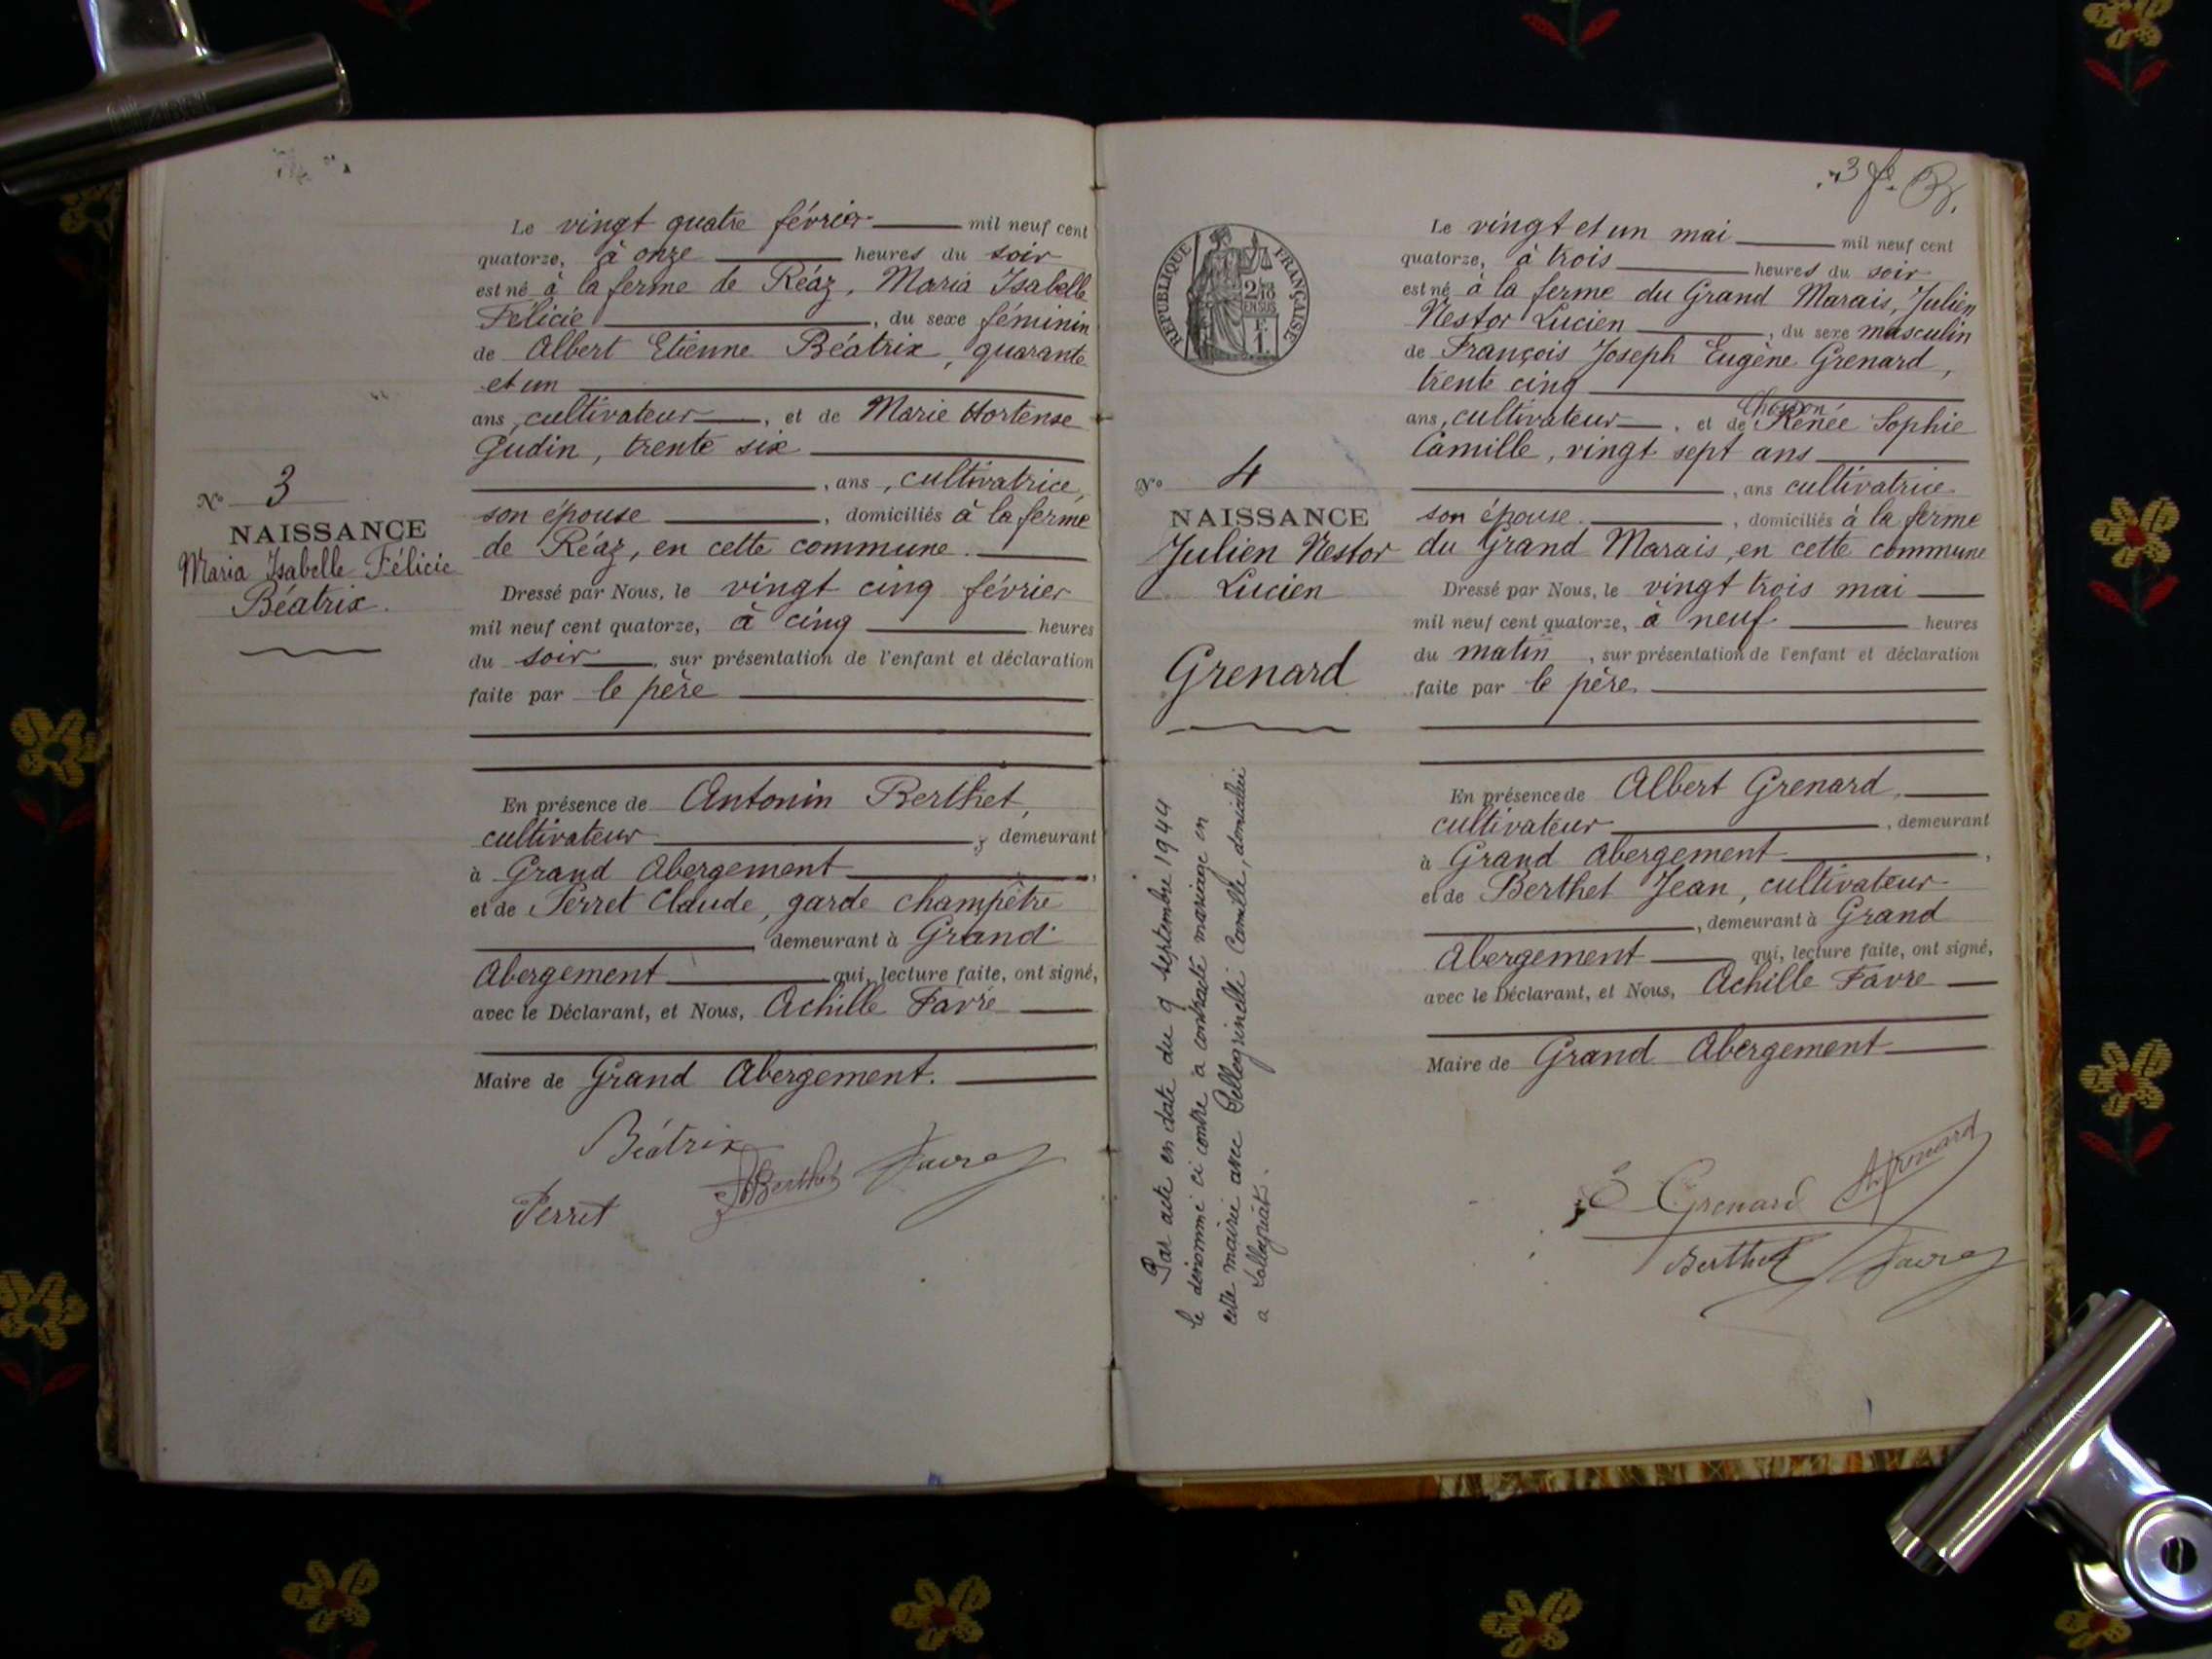 Le vingt quatre février mil neuf cent
quatorze, à onze heures du soir
est né à la ferme de Réaz, Maria Isabelle
Félicie, du sexe féminin
de Albert Etienne Béatrix, quarante
et un
ans, cultivateur, et de Marie Hortense
Gudin, trente six
, ans, cultivatrice,
son épouse, domiciliés à la ferme
de Réaz, en cette commune.
Dressé par Nous, le vingt cinq février
mil neuf cent quatorze, à cinq heures
du soir, sur présentation de l'enfant et déclaration
faite par le père
En présence de Antonin Berthet,
cultivateur, demeurant
à Grand Abergement,
et de Perret Claude, garde champêtre
, demeurant à Grand
Abergement qui, lecture faite, ont signé,
avec le Déclarant, et Nous, Achille Favre
Maire de Grand Abergement.
Béatrix
Berthet Favre
Perret
N° 3
NAISSANCE
Maria Isabelle Félicie
Béatrix.
3 f.
REPUBLIQUE FRANÇAISE
Le vingt et un mai mil neuf cent
quatorze, à trois heures du soir
est né à la ferme du Grand Marais, Julien
Nestor Lucien, du sexe masculin
de François Joseph Eugène Grenard,
trente cinq
ans, cultivateur, et de Renée Sophie
Camille, vingt sept ans
, ans cultivatrice
son épouse, domiciliés à la ferme
du Grand Marais, en cette commune
Dressé par Nous, le vingt trois mai
mil neuf cent quatorze, à neuf heures
du matin, sur présentation de l'enfant et déclaration
faite par le père
En présence de Albert Grenard,
cultivateur, demeurant
à Grand Abergement,
et de Berthet Jean, cultivateur
, demeurant à Grand
Abergement qui, lecture faite, ont signé,
avec le Déclarant, et Nous, Achille Favre
Maire de Grand Abergement
E Grenard A. Grenard
Berthet Favre
N° 4
NAISSANCE
Julien Nestor
Lucien
Grenard
Par acte en date du 9 septembre 1944
le dénommé ci contre a contracté mariage en
cette mairie avec Pellegrinelli Camille, domiciliée
a